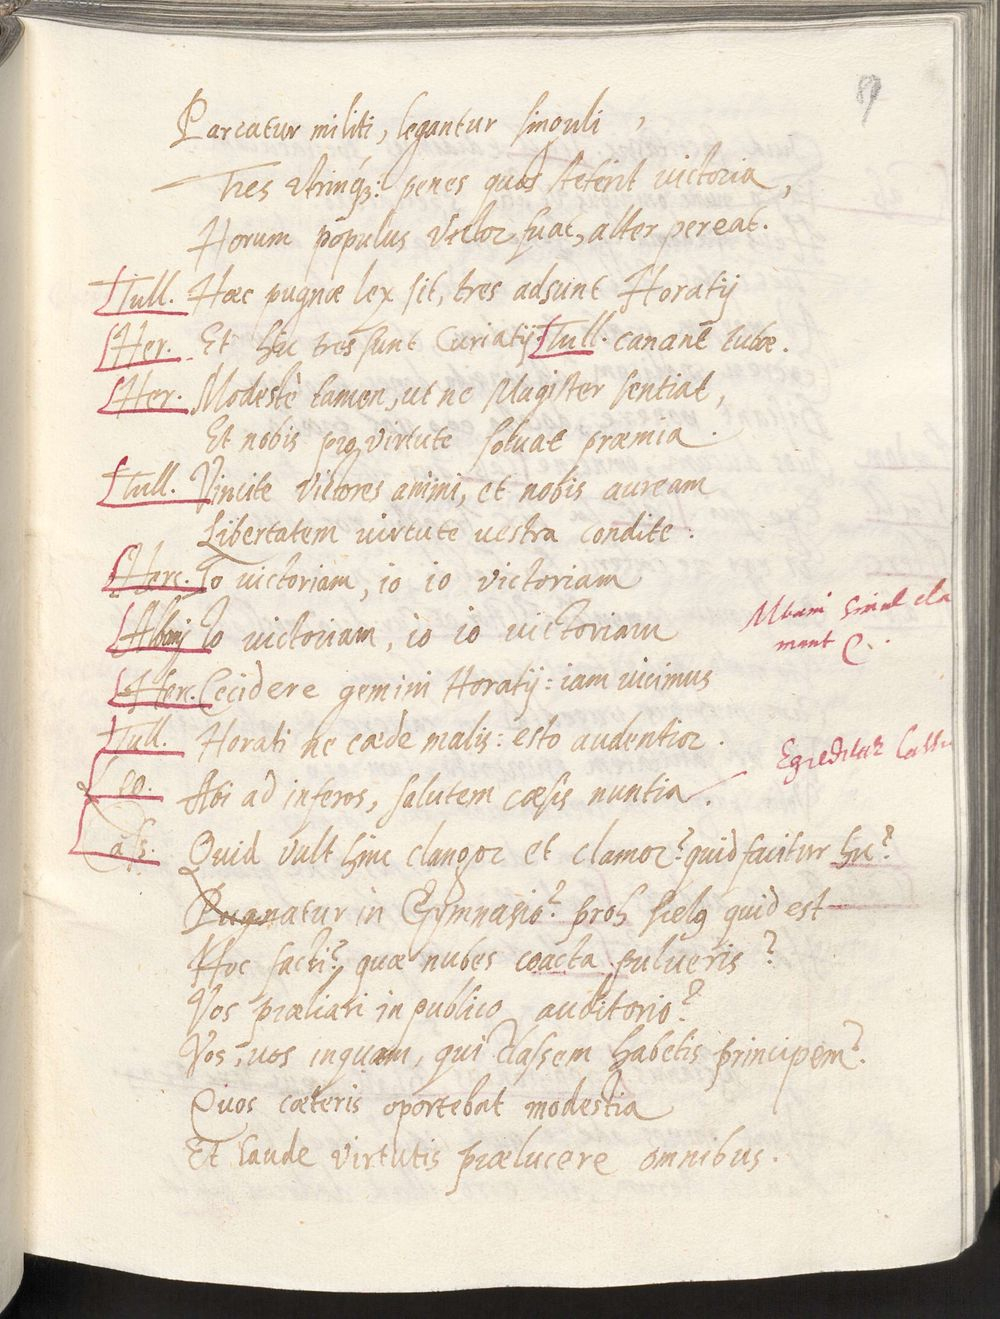 Parcatur militi, legantur singuli,
Tres utrinq;: penes quos steterit victoria,
Horum populus victor fuat, alter pereat.
Tull. Hæc pugnæ lex sit, tres adsunt Horatij
Her. Et hic tres sunt Curiatij. Tull. canant tubæ.
Her. Modestè tamen, ut ne Magister sentiat,
Et nobis pro virtute solvat præmia.
Tull. Vincite victores animi, et nobis auream
Libertatem virtute vestra condite.
Herc. Io victoriam, io io victoriam
Albanj Io victoriam, io io victoriam
Albani simul cla
mant
Her. Cecidere gemini Horatij: iam vicimus
Tull. Horati ne cæde malis: esto audentior.
Egreditur Cassi
Abi ad inferos, salutem cæsis nuntia.
Cass. Quid vult hinc clangor et clamor? quid facitur hic?
Pugnatur in Gymnasio? proh scelus quid est
Hoc facti? quæ nubes coacta pulveris?
Vos præliari in publico auditorio?
Vos, vos inquam, qui classem habetis principem?
Quos cæteris oportebat modestia
Et laude virtutis prælucere omnibus.